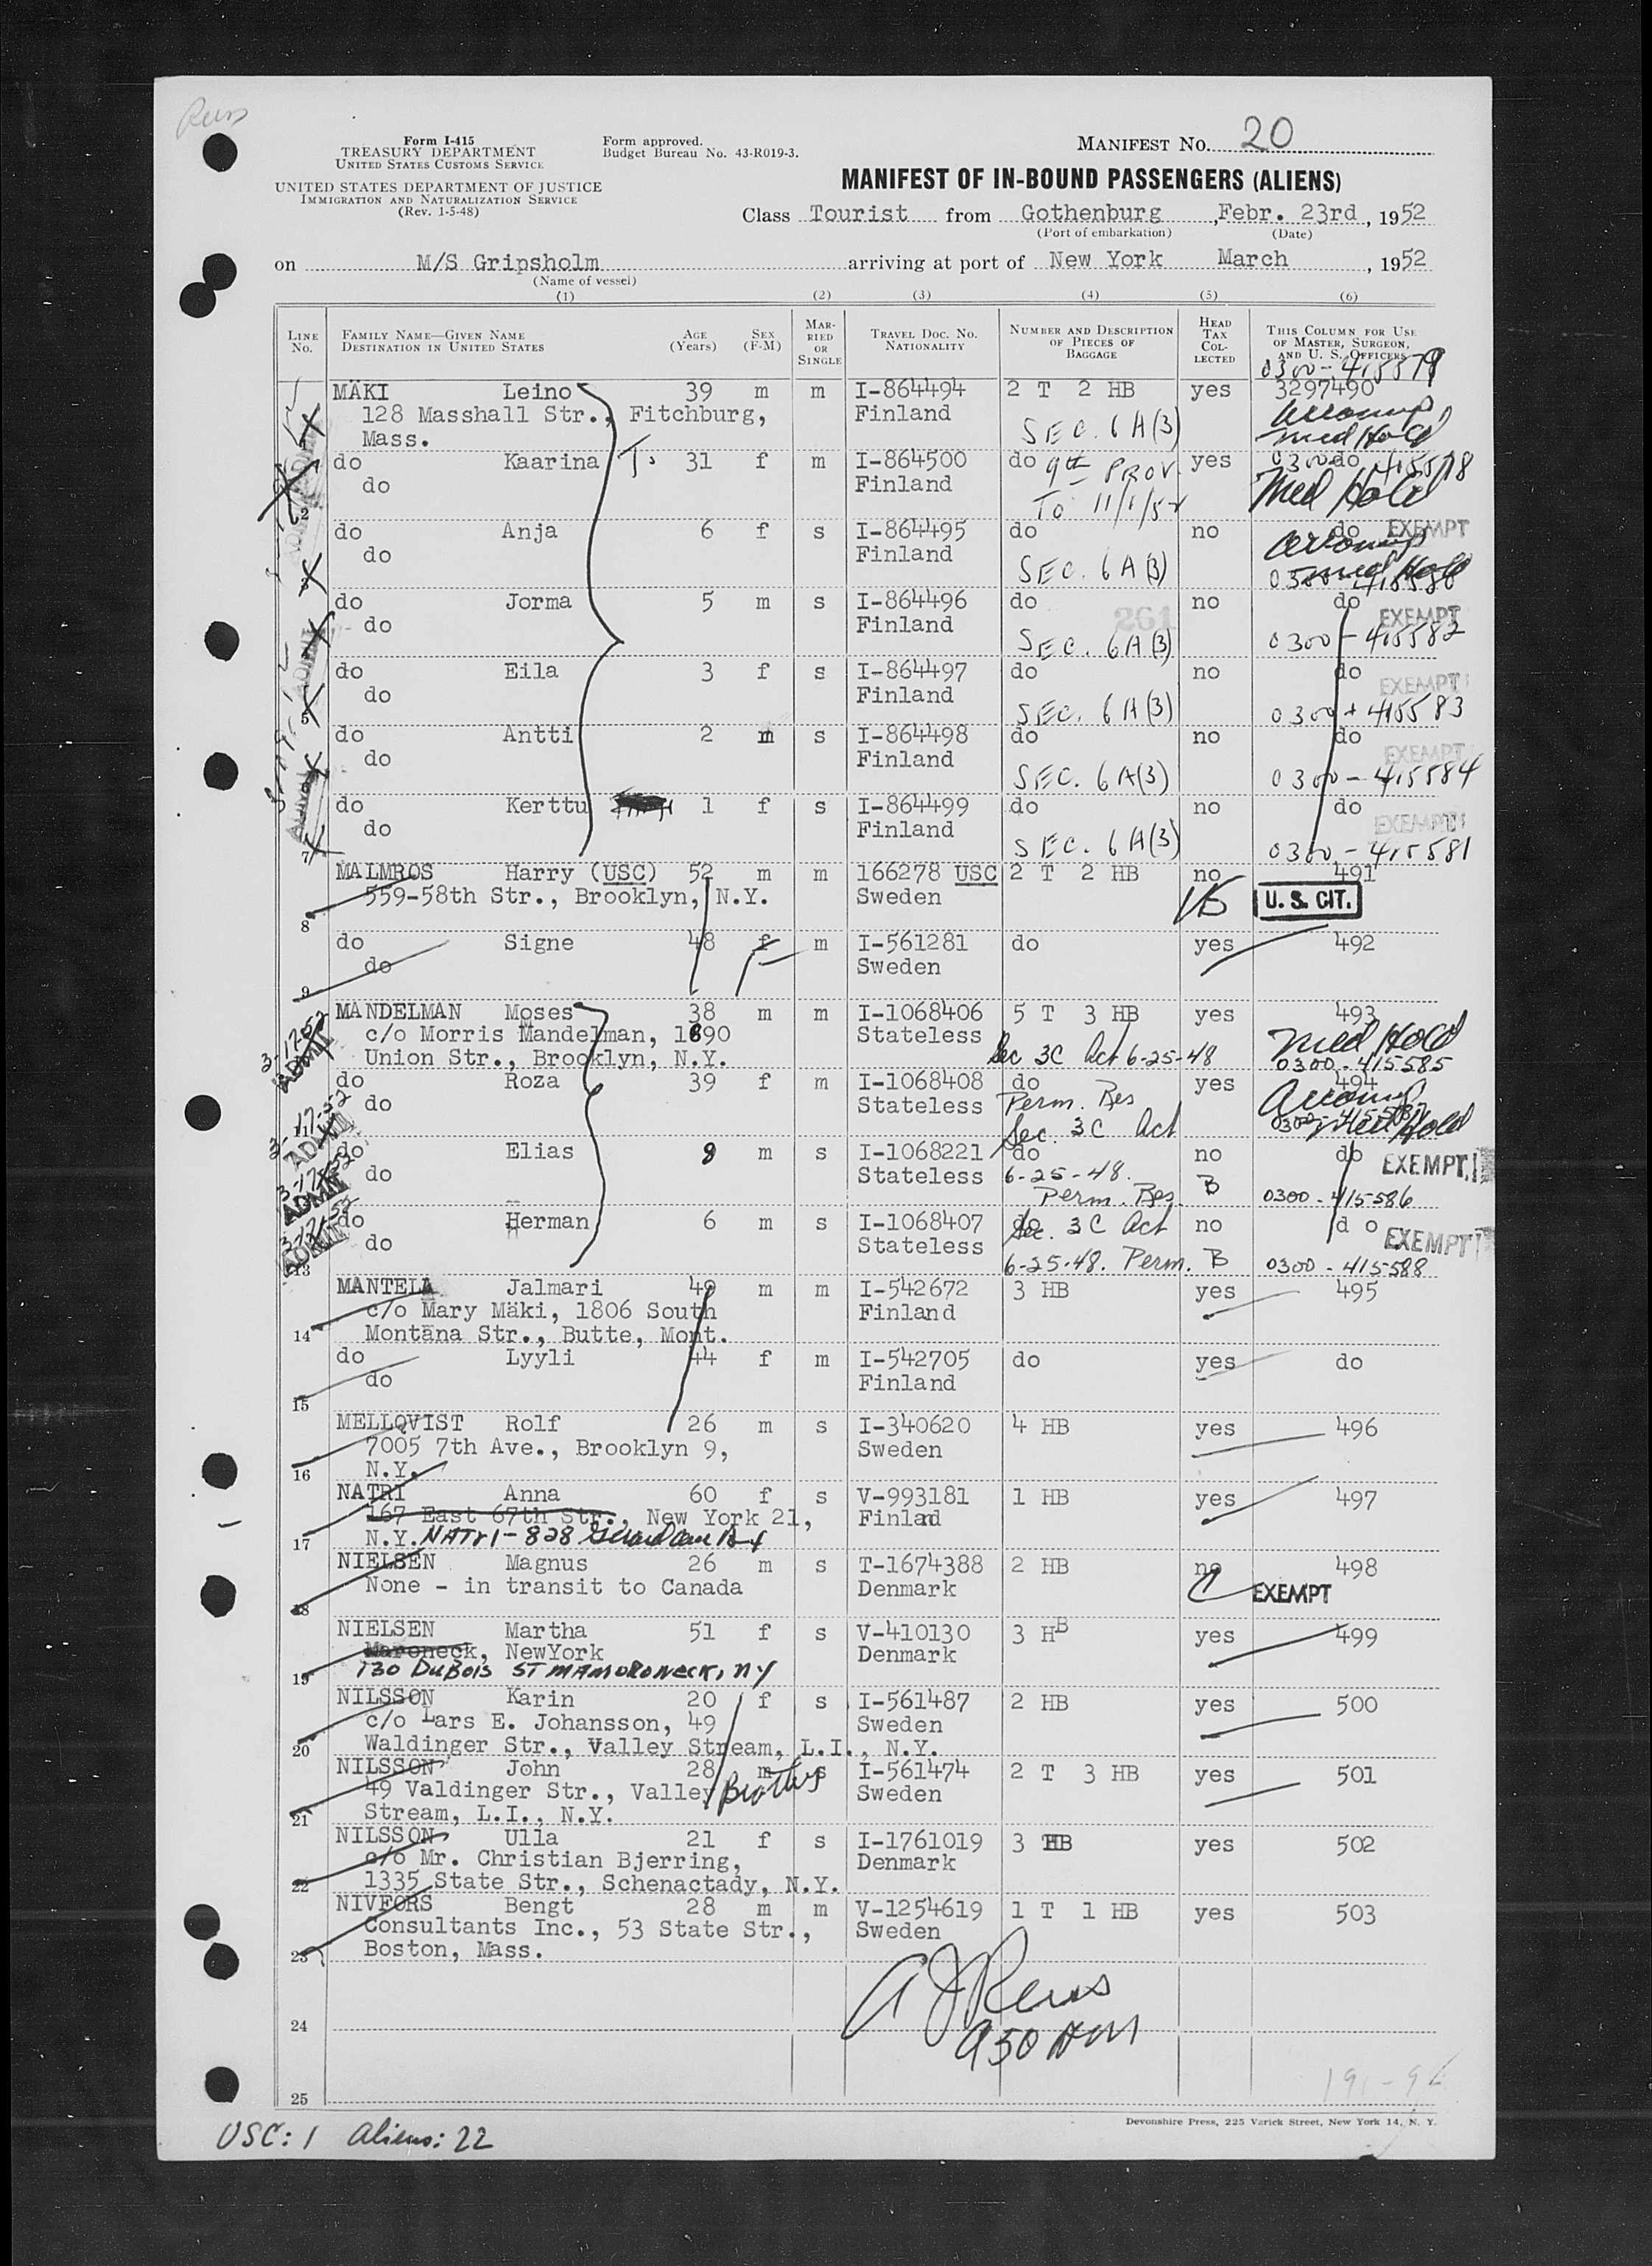 Form I-415
TREASURY DEPARTMENT
UNITED STATES CUSTOMS SERVICE
UNITED STATES DEPARTMENT OF JUSTICE
IMMIGRATION AND NATURALIZATION SERVICE
(Rev. 1-5-48)
Form approved.
Budget Bureau No. 43-R019-3.
MANIFEST NO. 20
MANIFEST OF IN-BOUND PASSENGERS (ALIENS)
Class Tourist from Gothenburg, Febr. 23rd, 1952
(Port of embarkation) (Date)
on M/S Gripsholm arriving at port of New York March, 1952
(Name of vessel)
(1) (2) (3) (4) (5) (6)
LINE NO.
FAMILY NAME—GIVEN NAME
DESTINATION IN UNITED STATES
AGE (Years)
SEX (F-M)
MARRIED OR SINGLE
TRAVEL DOC. NO. NATIONALITY
NUMBER AND DESCRIPTION OF PIECES OF BAGGAGE
HEAD TAX COLLECTED
THIS COLUMN FOR USE OF MASTER, SURGEON, AND U. S. OFFICERS
0300-415579
MÄKI Leino 39 m m I-864494 2 T 2 HB yes 3297490
128 Masshall Str., Fitchburg, Finland
Mass. SEC. 6 A(3) Med Hold
do Kaarina 31 f m I-864500 do yes do
do Finland 9th PROV.
2 To 11/1/5 Med Hold
do Anja 6 f s I-864495 do no do EXEMPT
do Finland
SEC. 6 A(3) Med Hold
do Jorma 5 m s I-864496 do 261 no do EXEMPT
do Finland
SEC. 6A(3) 0300-415582
do Eila 3 f s I-864497 do no do EXEMPT
do Finland
5 SEC. 6 A(3) 0300-415583
do Antti 2 m s I-864498 do no do EXEMPT
do Finland
SEC. 6 A(3) 0300-415584
do Kerttu 1 f s I-864499 do no do EXEMPT
do Finland
7 SEC. 6 A(3) 0300-415581
MALMROS Harry (USC) 52 m m 166278 USC 2 T 2 HB no 491
559-58th Str., Brooklyn, N.Y. Sweden U.S. CIT.
8
do Signe 48 f m I-561281 do yes 492
do Sweden
9
MANDELMAN Moses 38 m m I-1068406 5 T 3 HB yes 493
c/o Morris Mandelman, 1890 Stateless Med Hold
Union Str., Brooklyn, N.Y. Sec 3C Act 6-25-48 0300-415585
3-17-52 ADMIT
do Roza 39 f m I-1068408 do yes 494
do Stateless Perm. Res
11 Sec. 3C Act Med Hold
3-17-52 ADMIT
do Elias 8 m s I-1068221 do no do EXEMPT
do Stateless 6-25-48.
Perm. Res. B 0300-415586
3-17-52 ADMIT
do Herman 6 m s I-1068407 do Sec. 3C Act no do EXEMPT
do Stateless
13 6-25-48. Perm. B 0300-415588
3-17-52 ADMIT
MANTELA Jalmari 49 m m I-542672 3 HB yes 495
c/o Mary Mäki, 1806 South Finland
14 Montana Str., Butte, Mont.
do Lyyli 44 f m I-542705 do yes do
do Finland
15
MELLQVIST Rolf 26 m s I-340620 4 HB yes 496
7005 7th Ave., Brooklyn 9, Sweden
16 N.Y.
NATRI Anna 60 f s V-993181 1 HB yes 497
167 East 67th Str., New York 21, Finland
17 N.Y. NATRI-828
NIELSEN Magnus 26 m s T-1674388 2 HB no 498
None - in transit to Canada Denmark EXEMPT
18
NIELSEN Martha 51 f s V-410130 3 HB yes 499
Maroneck, NewYork Denmark
19 730 DUBOIS ST MAMORONECK, NY
NILSSON Karin 20 f s I-561487 2 HB yes 500
c/o Lars E. Johansson, 49 Sweden
20 Waldinger Str., Valley Stream, L.I., N.Y.
NILSSON John 28 m s I-561474 2 T 3 HB yes 501
49 Valdinger Str., Valley Brothers Sweden
21 Stream, L.I., N.Y.
NILSSON Ulla 21 f s I-1761019 3 HB yes 502
c/o Mr. Christian Bjerring, Denmark
22 1335 State Str., Schenactady, N.Y.
NIVFORS Bengt 28 m m V-1254619 1 T 1 HB yes 503
Consultants Inc., 53 State Str., Sweden
23 Boston, Mass.
24
950 AM
25
Devonshire Press, 225 Varick Street, New York 14, N. Y.
USC: 1 Aliens: 22